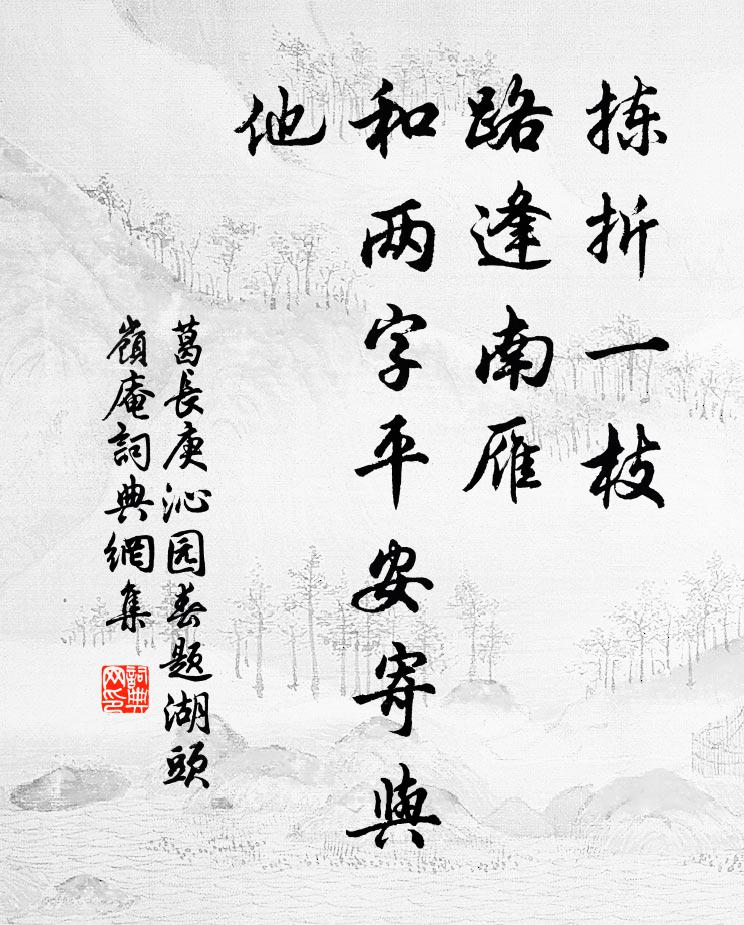 拣折一枝
路逢南雁
和两字平安寄與
他
葛長庚沁园春题湖頭
嶺庵詞典網集
詞典
网印